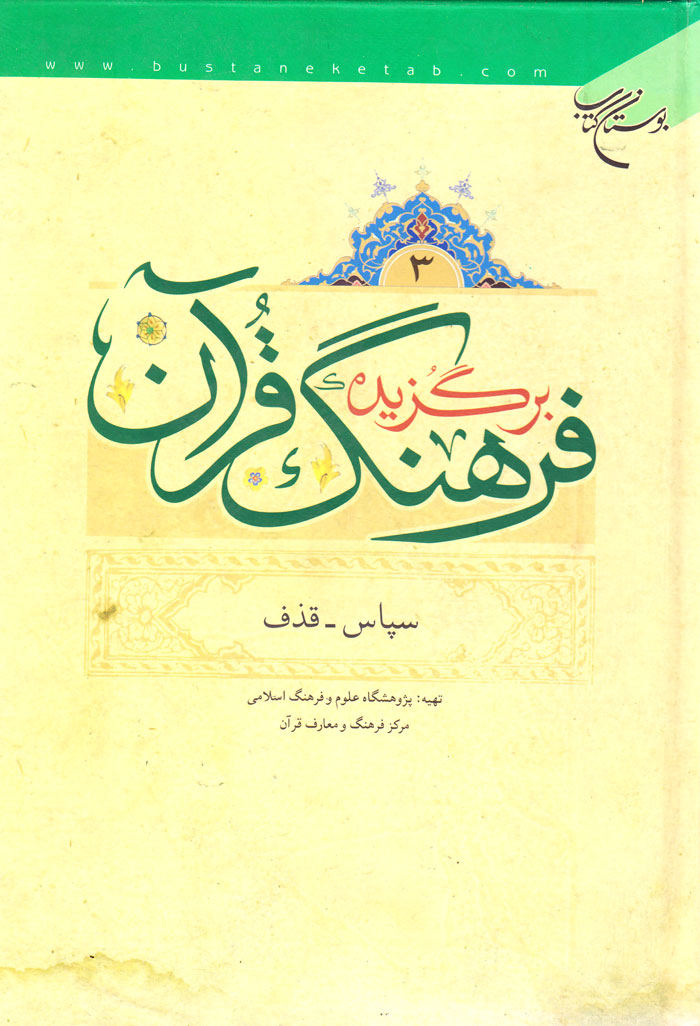 www.bustaneketab.com
بوستان کتاب
۳
برگزیده
فرهنگ قرآن
سپاس - قذف
تهیه: پژوهشگاه علوم و فرهنگ اسلامی
مرکز فرهنگ و معارف قرآن